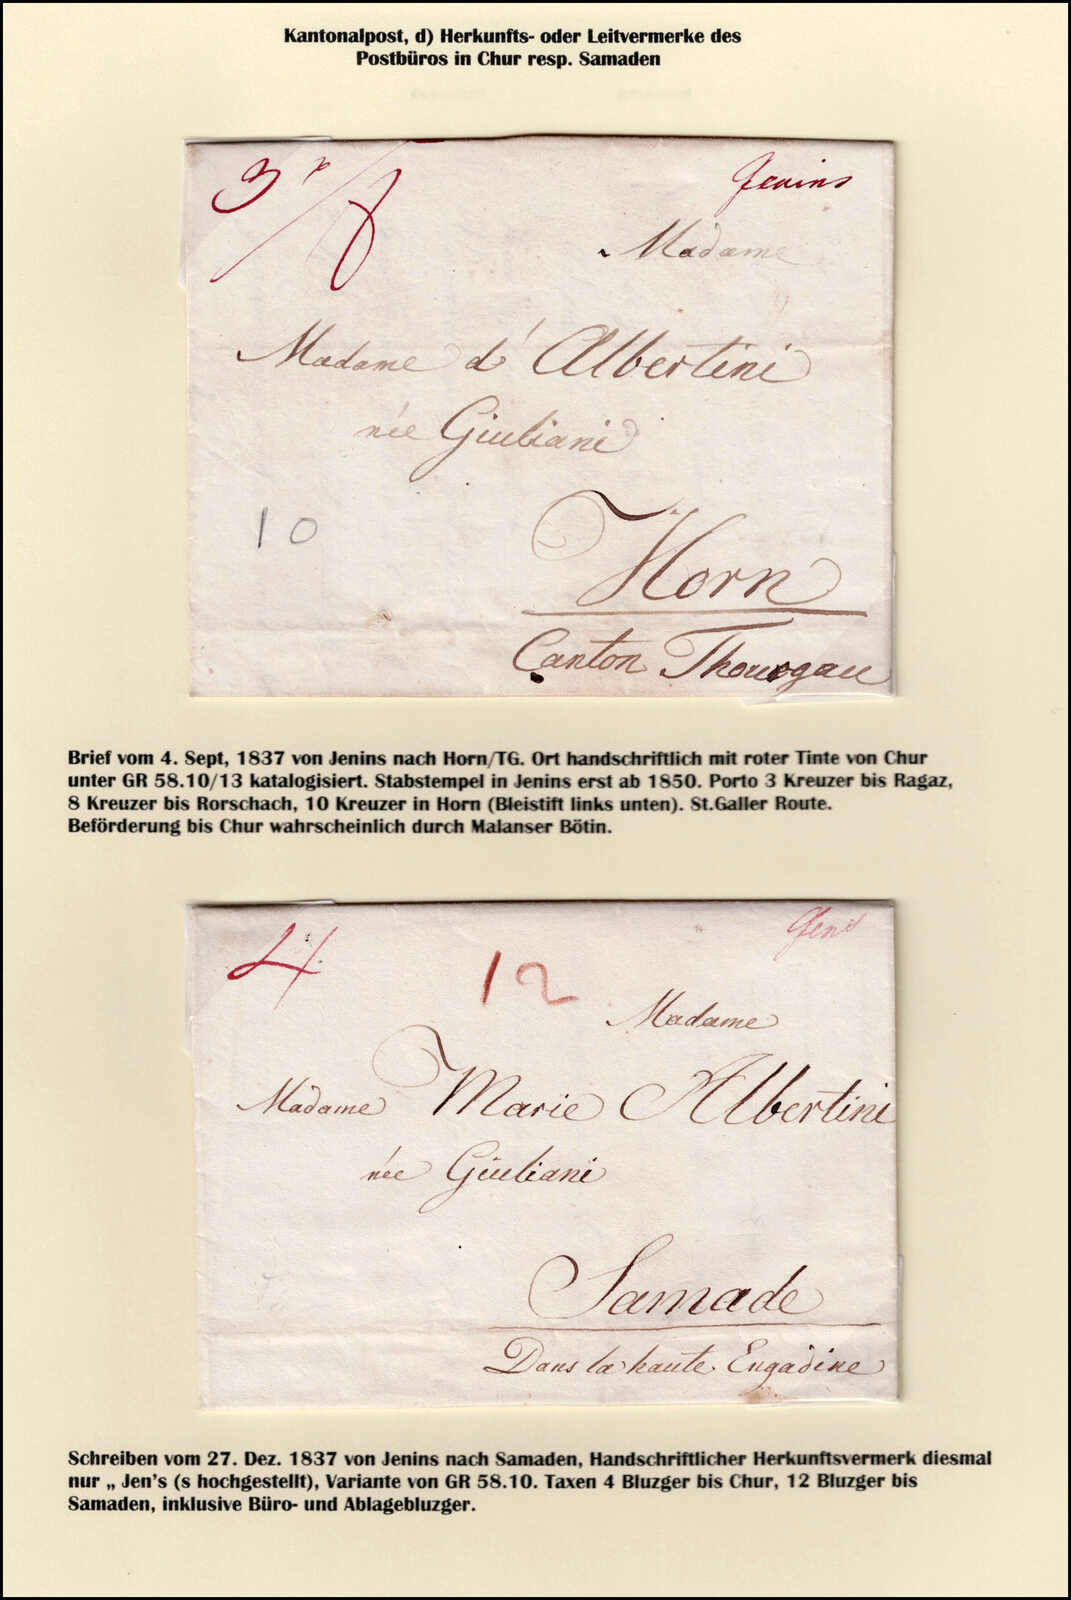 Kantonalpost, d) Herkunfts- oder Leitvermerke des
Postbüros in Chur resp. Samaden
3
Jenins
Madame
Madame d'Albertini
née Giuliani
10
Horn
Canton Thourgau
Brief vom 4. Sept, 1837 von Jenins nach Horn/TG. Ort handschriftlich mit roter Tinte von Chur
unter GR 58.10/13 katalogisiert. Stabstempel in Jenins erst ab 1850. Porto 3 Kreuzer bis Ragaz,
8 Kreuzer bis Rorschach, 10 Kreuzer in Horn (Bleistift links unten). St.Galler Route.
Beförderung bis Chur wahrscheinlich durch Malanser Bötin.
4
12
Jens
Madame
Madame Marie Albertini
née Giuliani
Samade
Dans la haute Engadine
Schreiben vom 27. Dez. 1837 von Jenins nach Samaden, Handschriftlicher Herkunftsvermerk diesmal
nur „ Jen's (s hochgestellt), Variante von GR 58.10. Taxen 4 Bluzger bis Chur, 12 Bluzger bis
Samaden, inklusive Büro- und Ablagebluzger.